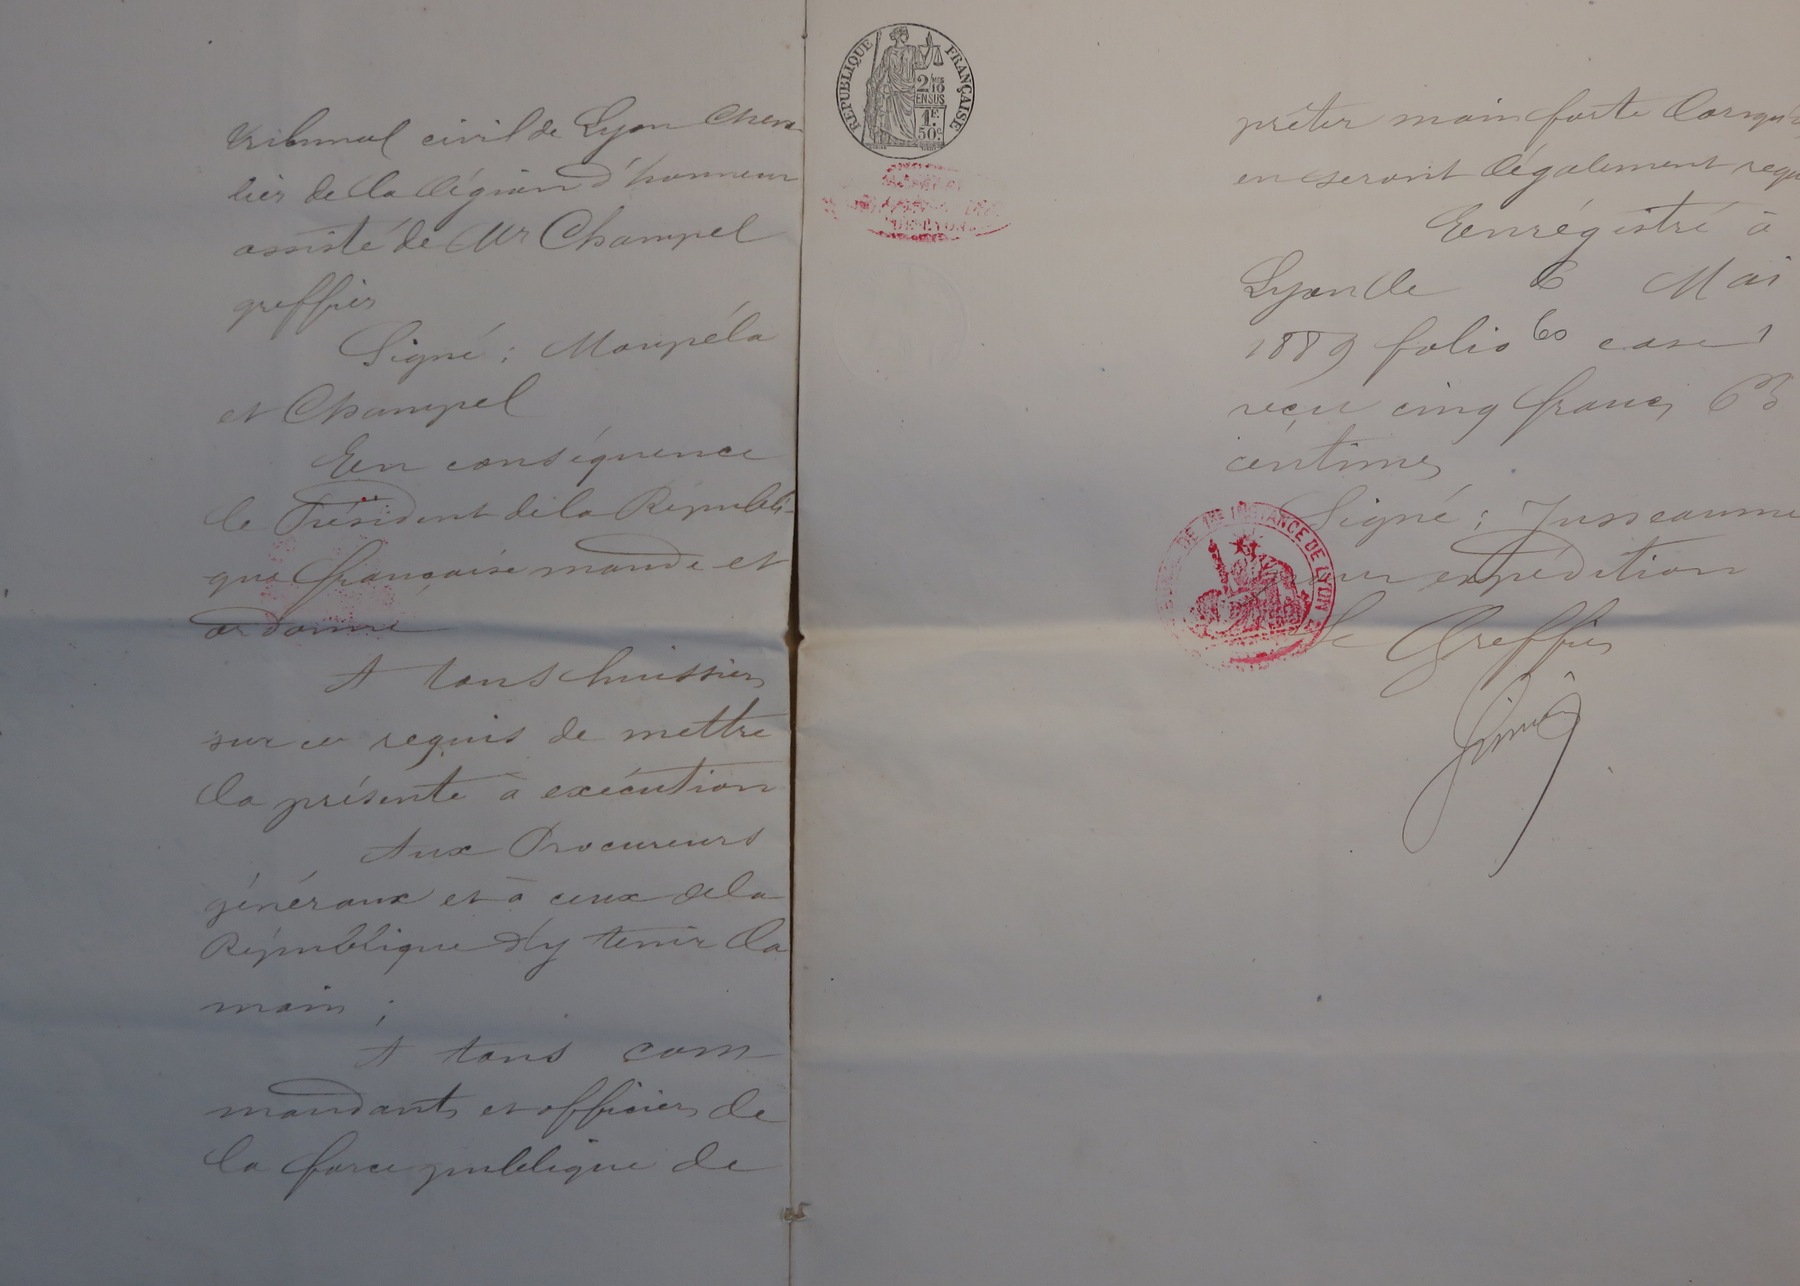 tribunal civil de Lyon Cheva
lier de la légion d'honneur
assisté de Mr Champel
greffier
Signé : Monpéla
et Champel
En conséquence
le Président de la Républi-
que française mande et
ordonne
A tous huissiers
sur ce requis de mettre
la présente à exécution
Aux Procureurs
généraux et à ceux de la
République d'y tenir la
main ;
A tous com
mandants et officiers de
la force publique de
RÉPUBLIQUE FRANÇAISE
2/10
EN SUS
1F.
50c.
DE LYON
prêter main forte lorsqu'
en seront légalement requ
Enrégistré à
Lyon le 6 Mai
1889 folio 60 case 1
reçu cinq francs 63
centimes
Signé : Jusseaume
pour expédition
Le Greffier
DE 1RE INSTANCE DE LYON